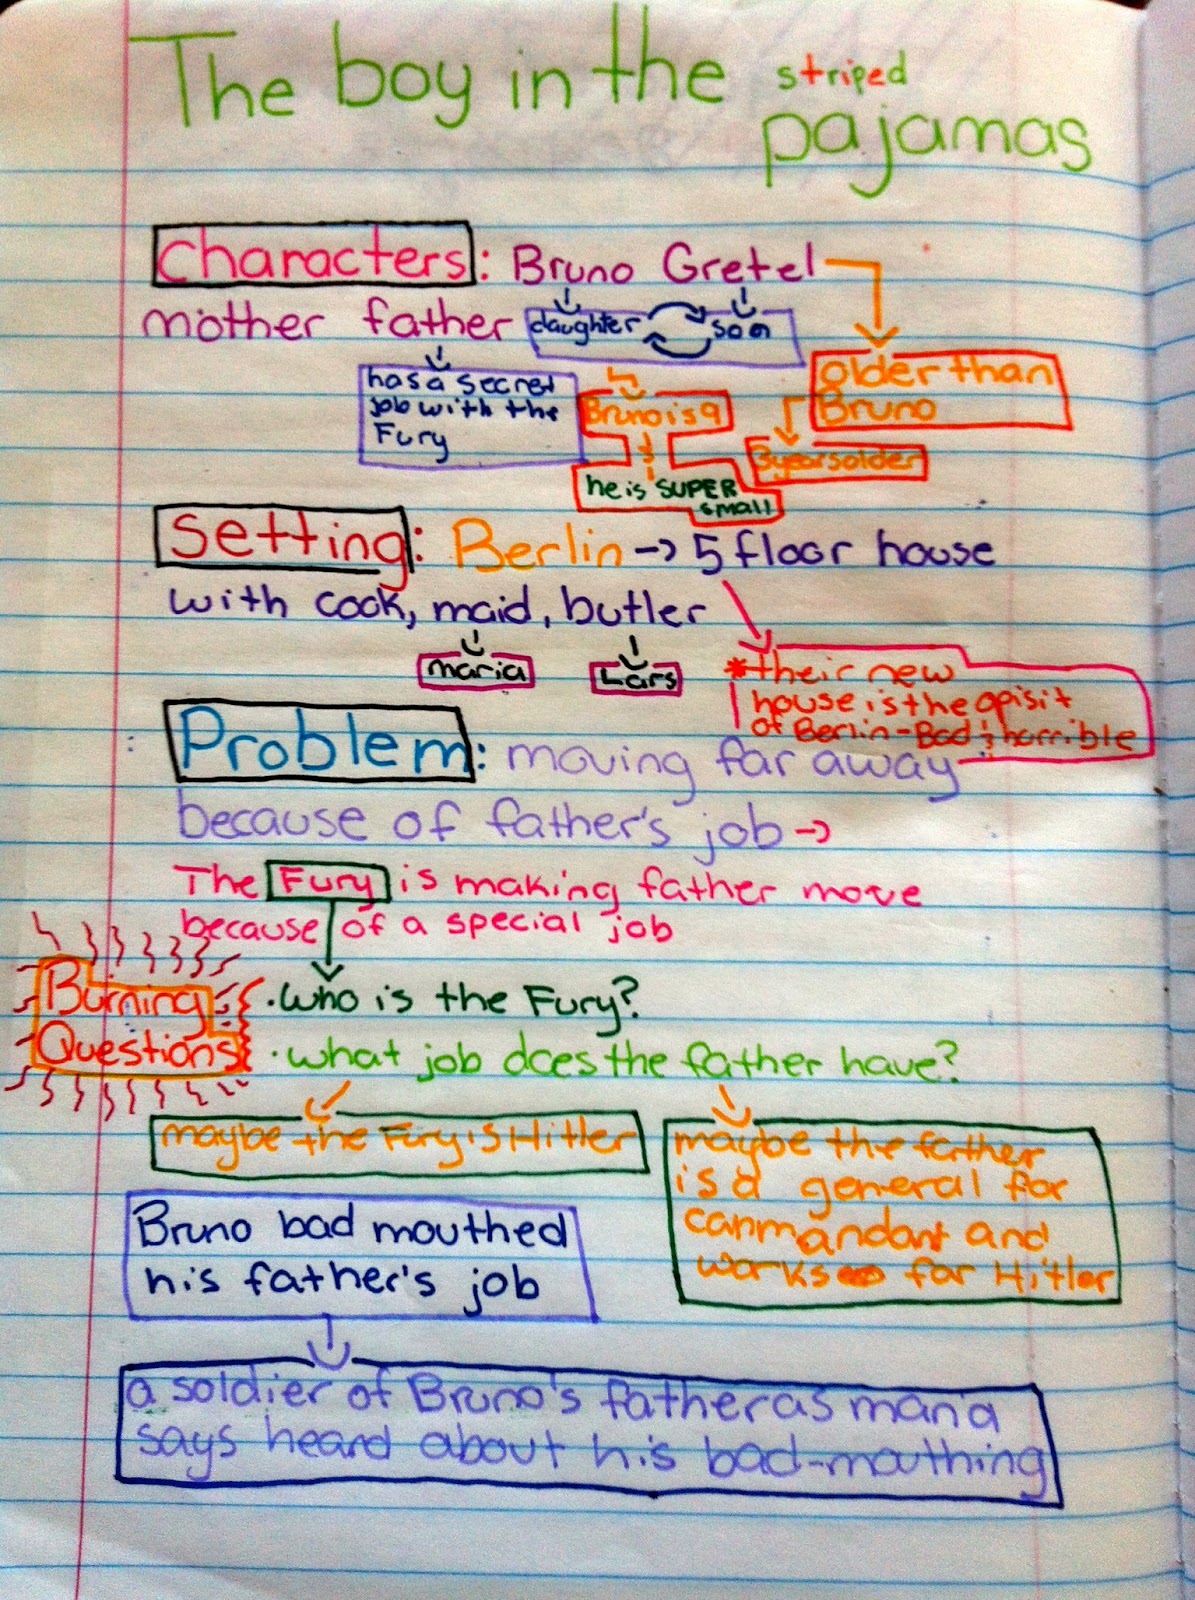 The boy in the striped
pajamas
Characters: Bruno Gretel
mother father daughter son
has a secret
job with the
Fury
Bruno is 9
he is SUPER
small
older than
Bruno
3 years older
Setting: Berlin → 5 floor house
with cook, maid, butler
maria
Lars
*their new
house is the opisit
of Berlin - Bad & horrible
Problem: moving far away
because of father's job →
The Fury is making father move
because of a special job
Burning
Questions
· Who is the Fury?
· what job does the father have?
maybe the Fury is Hitler
maybe the father
is a general for
canmandant and
works for Hitler
Bruno bad mouthed
his father's job
a soldier of Bruno's father as maria
says heard about his bad-mouthing